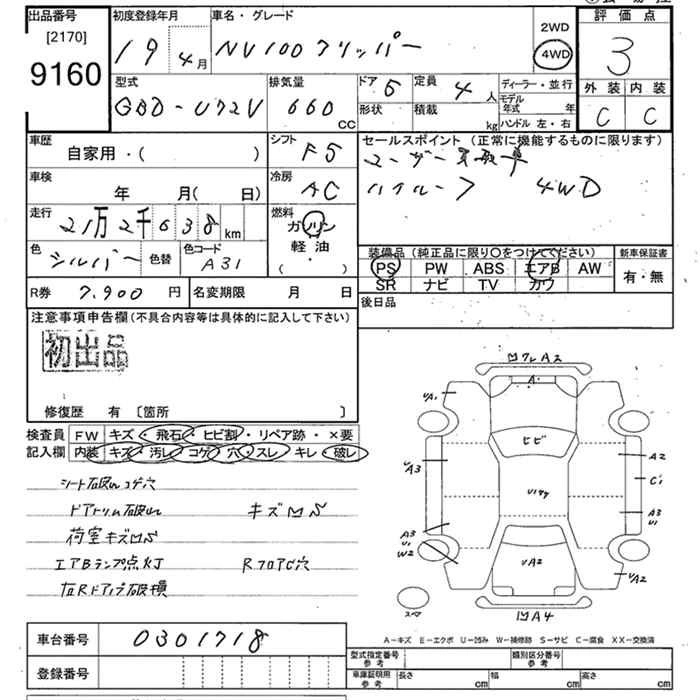 出品番号 初度登録年月 車名・グレード 評価点
[2170]
9160
19 4月 NV100クリッパー 2WD 4WD 3
型式 排気量 ドア 5 定員 4人 ディーラー・並行 外装 内装
GBD-U72V 660 CC 形状 積載 kg モデル年式 年 C C
ハンドル 左・右
車歴 シフト セールスポイント (正常に機能するものに限ります)
自家用・( ) F5 ユーザー買取車
車検 冷房 ハイルーフ 4WD
年 月( 日) AC
走行 燃料
21万2千638km ガソリン
軽油
( )
色 シルバー 色替 色コード A31
装備品 (純正品に限り○をつけてください) 新車保証書
PS PW ABS エアB AW 有・無
SR ナビ TV カワ
R券 7,900 円 名変期限 月 日 後日品
注意事項申告欄(不具合内容等は具体的に記入して下さい)
初出品
修復歴 有 〔箇所 〕
検査員 FW キズ・飛石・ヒビ割・リペア跡・×要
記入欄 内装 キズ・汚レ・コゲ・穴・スレ・キレ・破レ
シート破レコゲ穴
ドアトリム破レ キズ凹S
荷室キズ凹S
エアBランプ点灯 RフロアC穴
左Rドアノブ破損
凹ワレA2
A
UA1
ヒビ
UA3 A2
C1
U177
A3 U1 W2 A3 U1
UA2 UA2
スペア 凹A4
A-キズ E-エクボ U-凹み W-補修跡 S-サビ C-腐食 XX-交換済
車台番号 0301718
登録番号
型式指定番号 参考 類別区分番号 参考
車庫証明用 参考 長さ cm 幅 cm 高さ cm